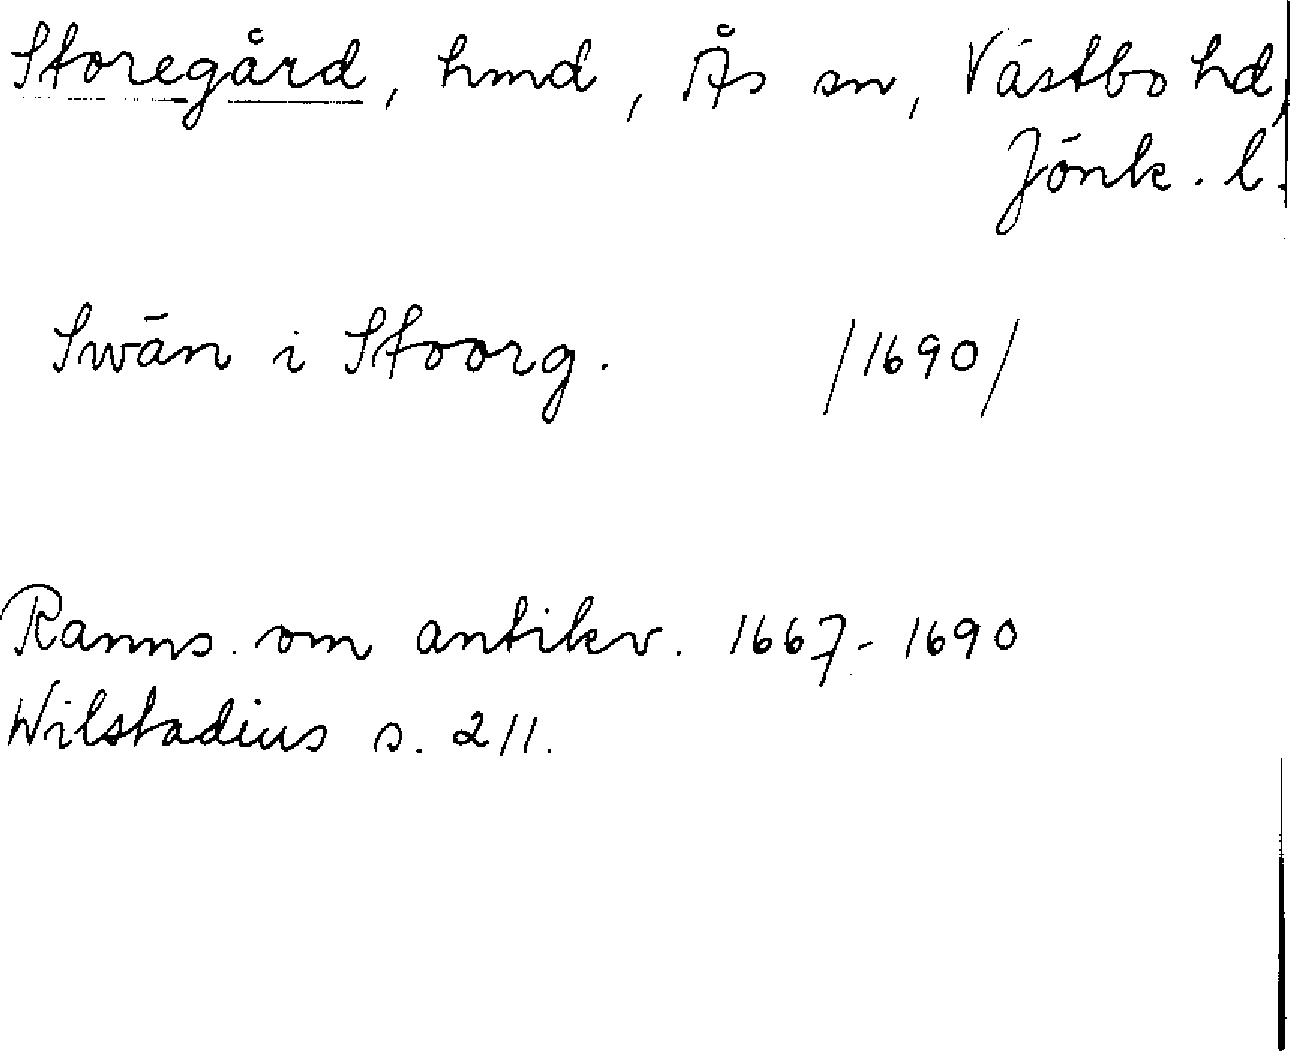 Storegård, hmd, Ås sn, Västbo hd,
Jönk. l.
Swän i Stoorg. /1690/
Ranns. om antikv. 1667-1690
Wilstadius s. 211.